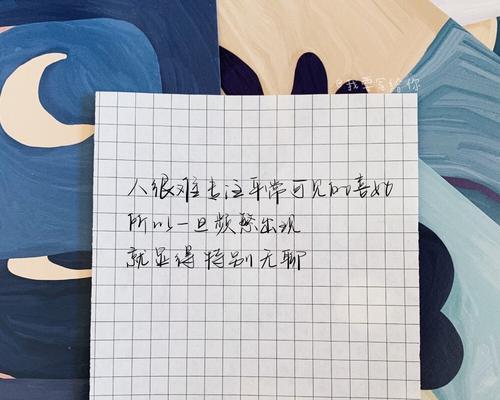 @我要写给你
人很难专注平常可见的喜好
所以一旦频繁出现
就显得特别无聊